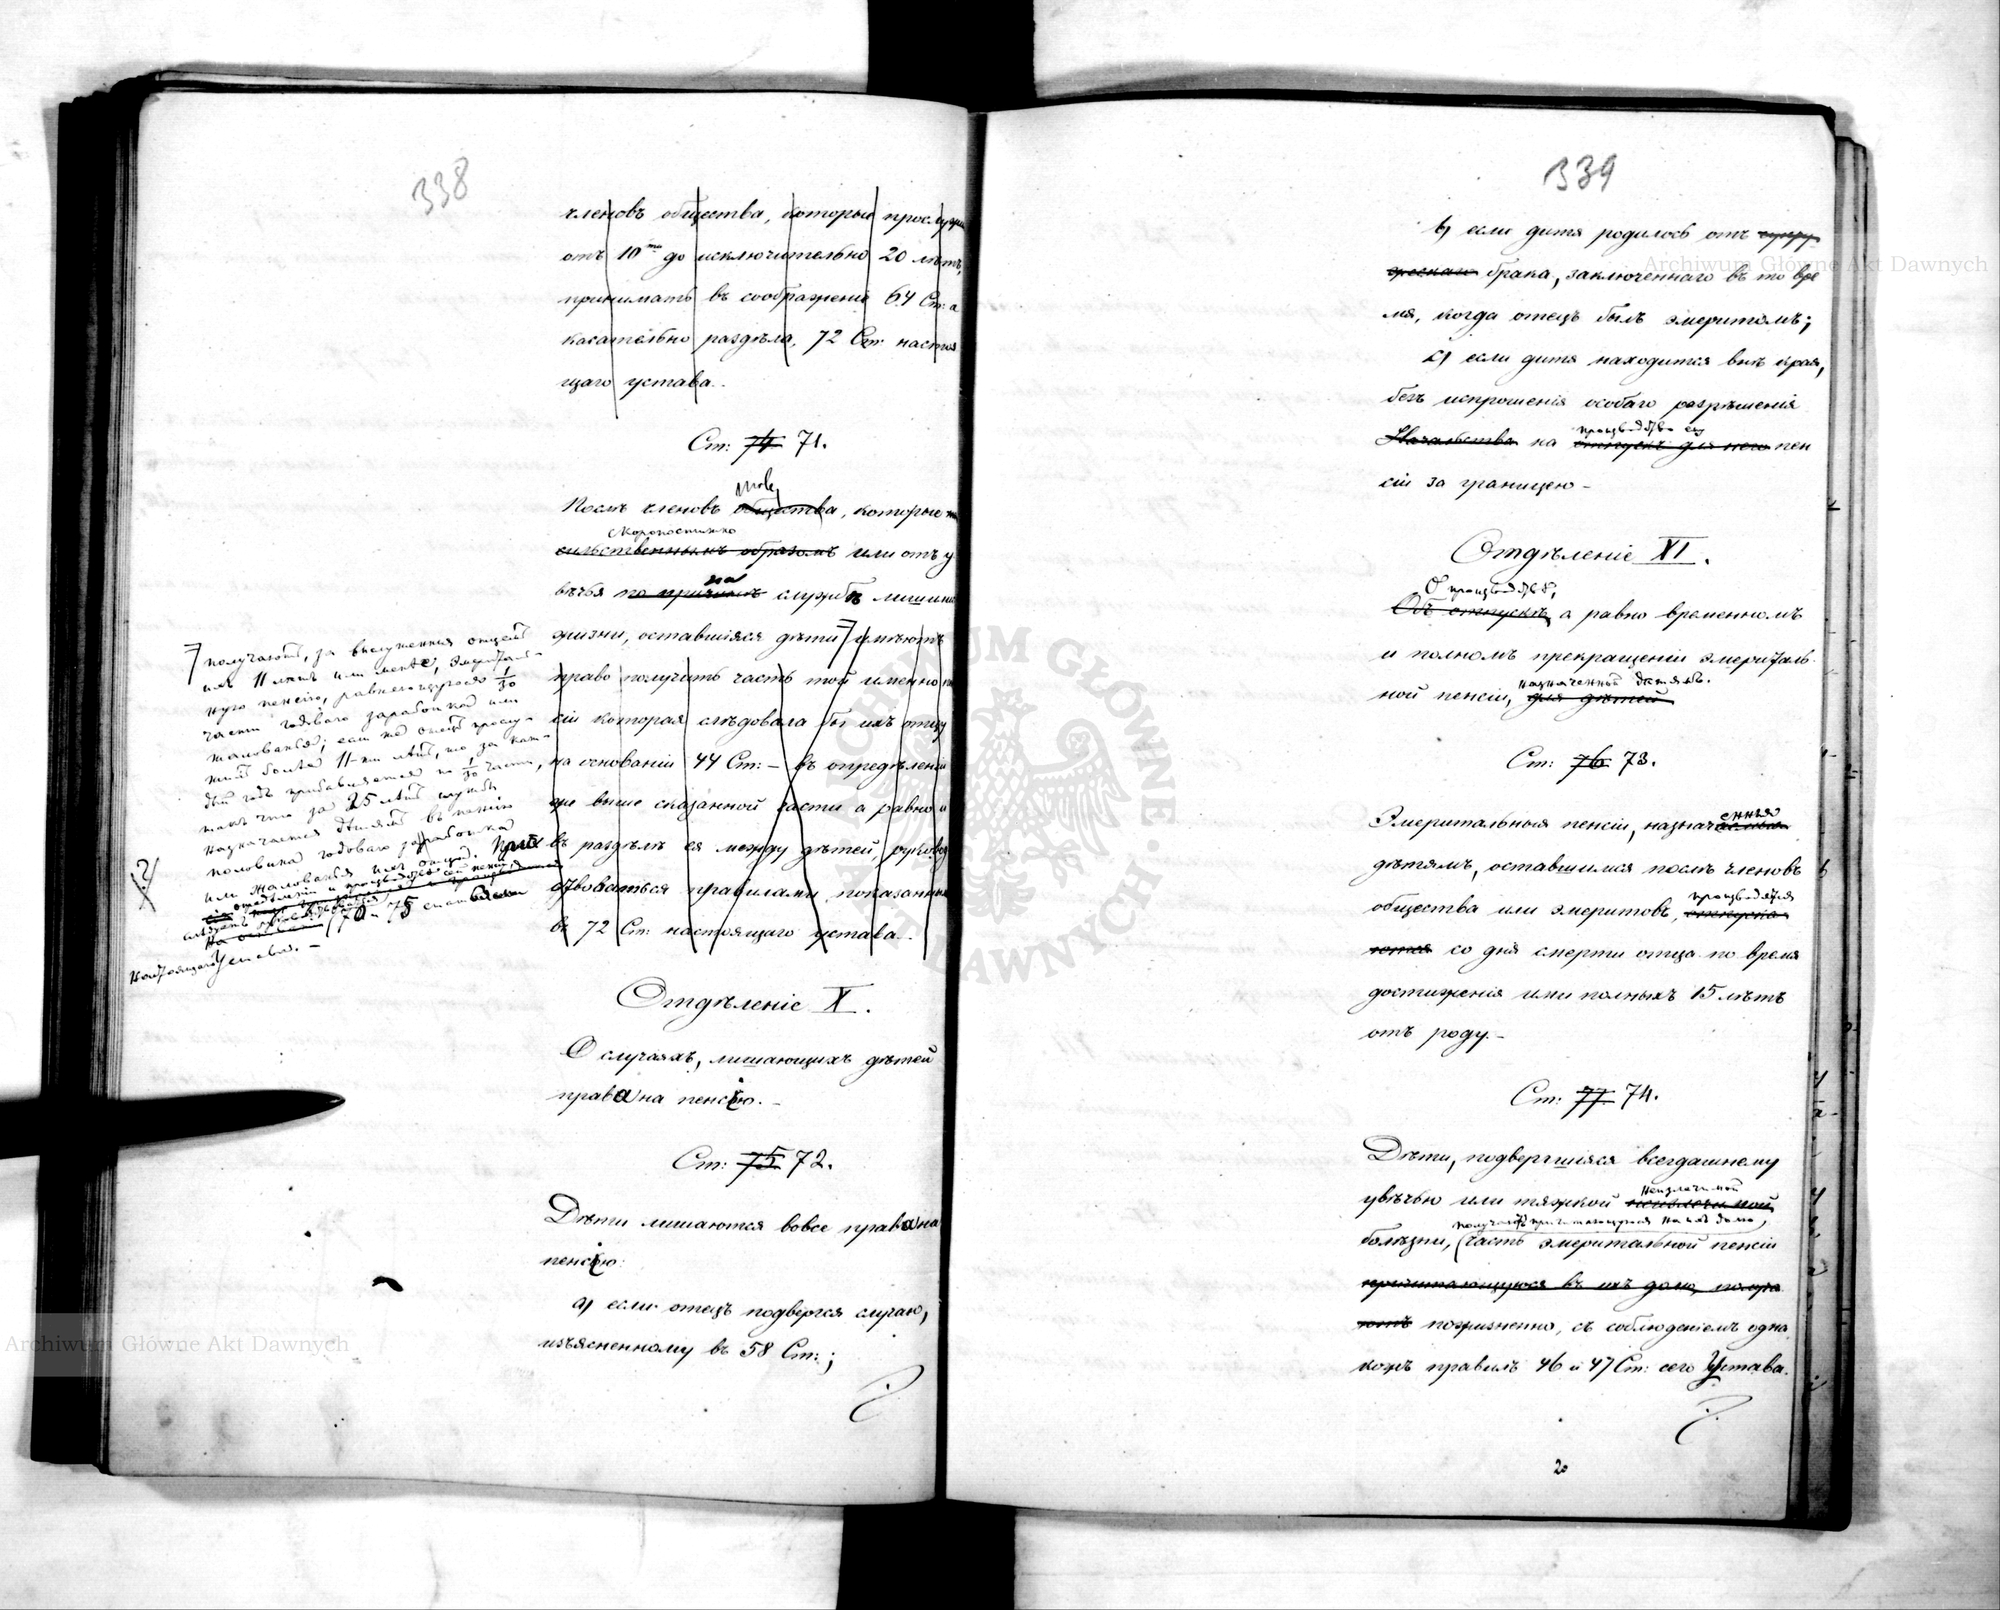 338
членовъ общества, которые прослужи
отъ 10ти до исключительно 20 лѣтъ,
принимать въ соображеніе 64 Ст: а
касательно раздѣла, 72 Ст: настоя
щаго устава.
Ст: 74 71.
това
Послѣ членовъ общества, которые на
скоропостижно
сильственнымъ образомъ или отъ у
на
вѣчья по причинѣ службѣ лишены
жизни, оставшіяся дѣти имѣютъ
право получить часть той именно пен
сіи которая слѣдовала бы ихъ отцу
на основаніи 44 Ст: – въ опредѣленіи
же выше сказанной части а равно и
въ раздѣлѣ ея между дѣтей, руковод
ствоваться правилами показанными
въ 72 Ст: настоящаго устава.
получаютъ, за выслуженныя отцемъ
ихъ 11 лѣтъ или менѣе, эмериталь-
ную пенсію, равняющуюся 1/30
части годоваго заработка или
жалованья; если же отецъ прослу-
жилъ болѣе 11-ти лѣтъ, то за каж-
дый годъ прибавляется по 1/30 части,
такъ что за 25 лѣтъ службы
назначается дѣтямъ въ пенсію
половина годоваго заработка
или жалованья ихъ отца. При
70 и 75 статьями
настоящаго Устава. –
Отдѣленіе X.
О случаяхъ, лишающихъ дѣтей
права на пенсію. –
Ст: 75 72.
Дѣти лишаются вовсе права на
пенсію:
a) если отецъ подвергся случаю,
изъясненному въ 58 Ст:;
339
b) если дитя родилось отъ супру
жескаго брака, заключеннаго въ то вре
мя, когда отецъ былъ эмеритомъ;
c) если дитя находится внѣ края,
безъ испрошенія особаго разрѣшенія
производство ему
Начальства на отпускъ для него пен
сіи за границею –
Отдѣленіе XI.
О производствѣ,
Объ отпускѣ, а равно временномъ
и полномъ прекращеніи эмериталь
назначенной дѣтямъ.
ной пенсіи, для дѣтей
Ст: 76 73.
енныя
Эмеритальныя пенсіи, назначаемыя
дѣтямъ, оставшимся послѣ членовъ
производятся
общества или эмеритовъ, отпуска
ются со дня смерти отца по время
достиженія ими полныхъ 15 лѣтъ
отъ роду. –
Ст: 77 74.
Дѣти, подвергшіяся всегдашнему
неизлечимой
увѣчью или тяжкой неизлечимой
получаютъ причитающуюся на ихъ долю,
болѣзни, часть эмеритальной пенсіи
причитающуюся въ ихъ долю, получа
ютъ пожизненно, съ соблюденіемъ одна
кожъ правилъ 46 и 47 Ст: сего Устава.
20
Archiwum Główne Akt Dawnych
Archiwum Główne Akt Dawnych
ARCHIWUM GŁÓWNE AKT DAWNYCH